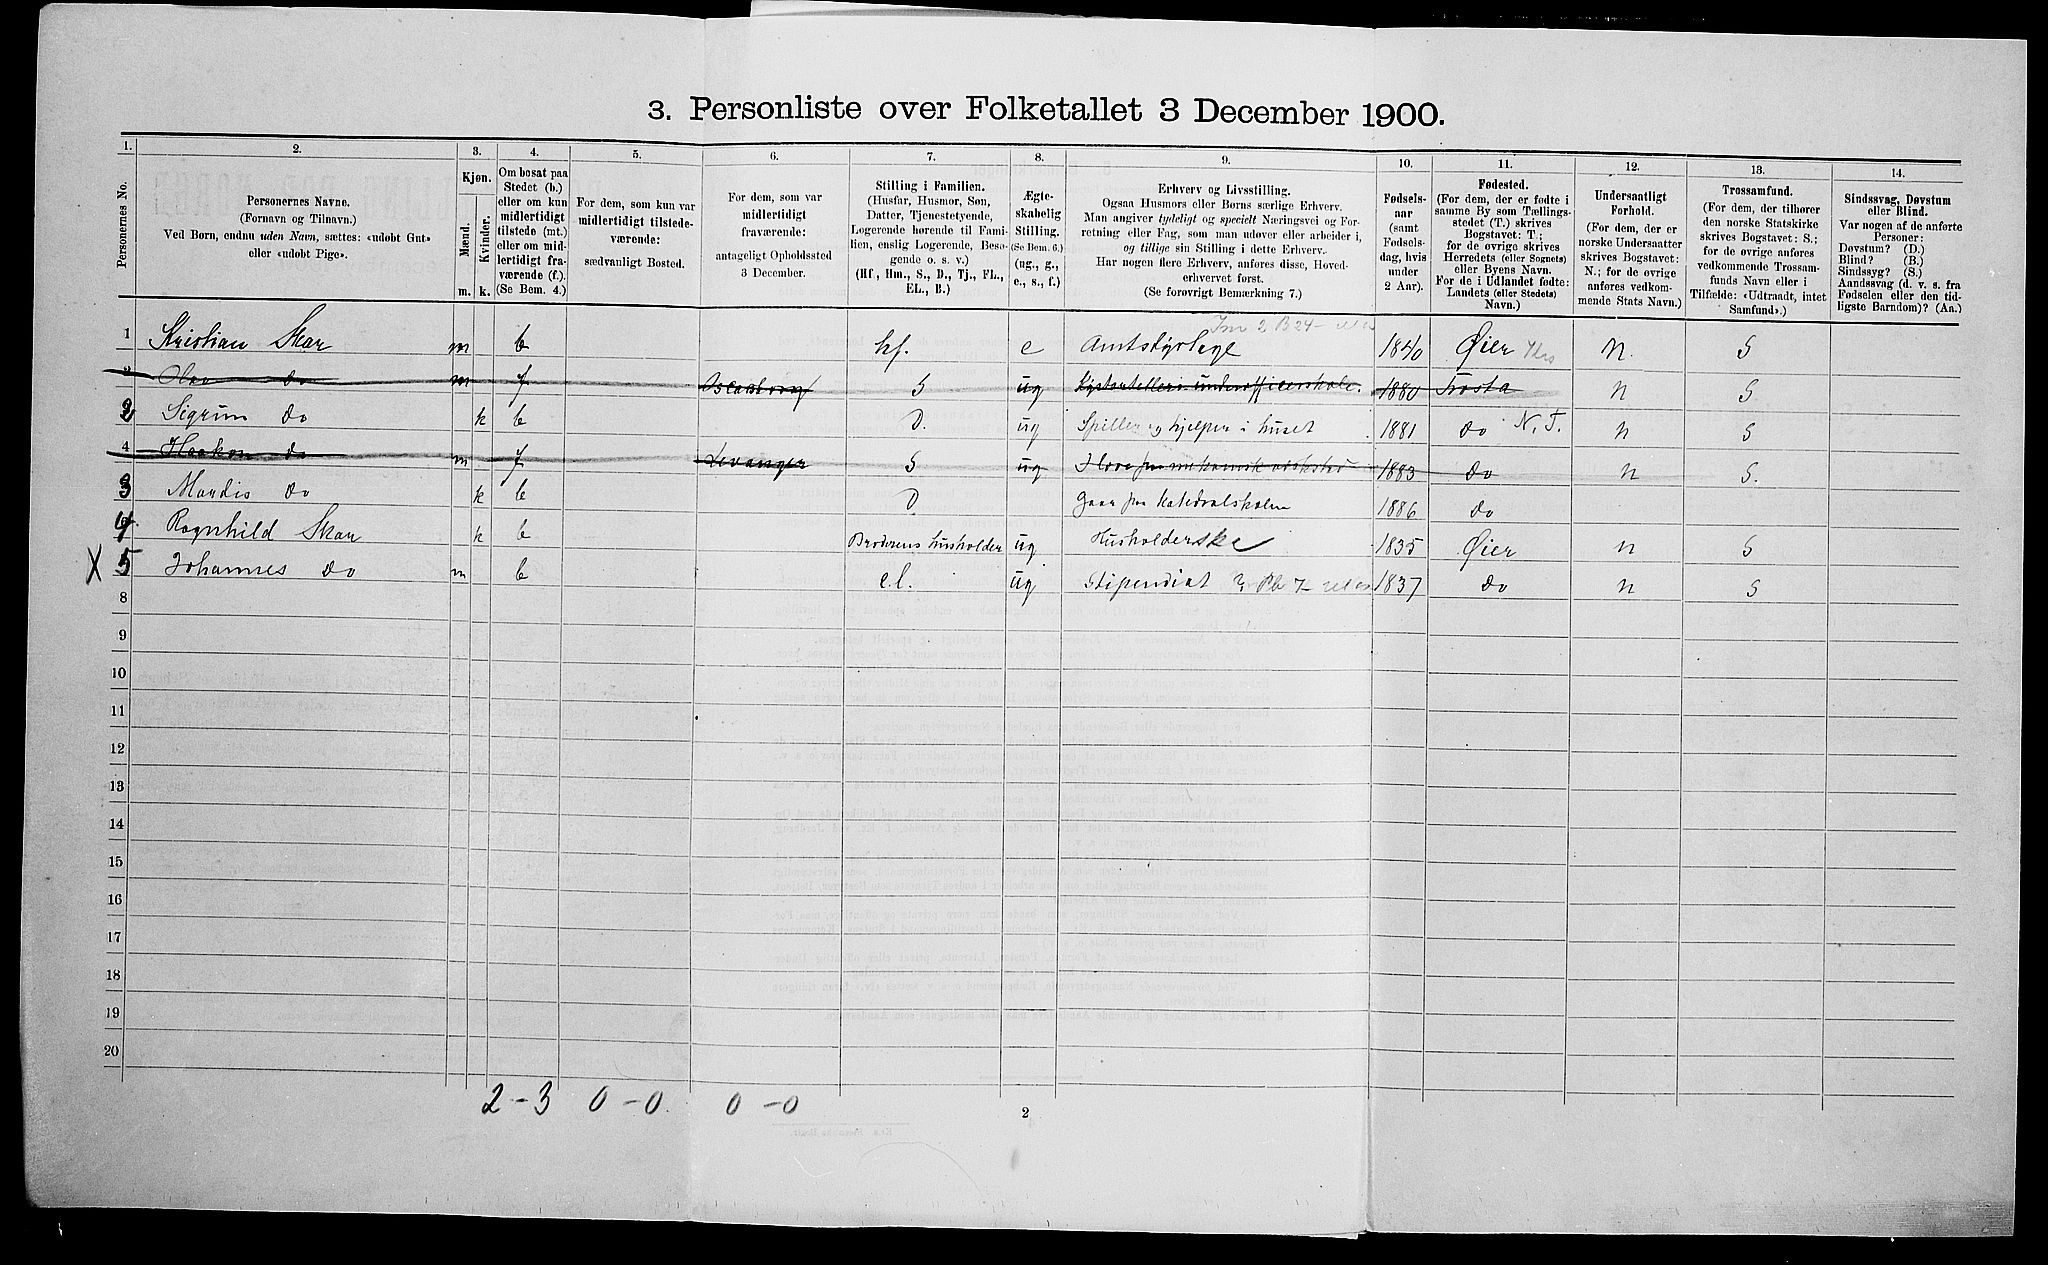 3. Personliste over Folketallet 3 December 1900.
1. 2. 3. 4. 5. 6. 7. 8. 9. 10. 11. 12. 13. 14.
Personernes No.
Personernes Navne.
(Fornavn og Tilnavn.)
Ved Børn, endnu uden Navn, sættes: «udøbt Gut»
eller «udøbt Pige».
Kjøn.
Mænd. Kvinder.
m. k.
Om bosat paa
Stedet (b.)
eller om kun
midlertidigt
tilstede (mt.)
eller om mid-
lertidigt fra-
værende (f.).
(Se Bem. 4.)
For dem, som kun var
midlertidigt tilstede-
værende:
sædvanligt Bosted.
For dem, som var
midlertidigt
fraværende:
antageligt Opholdssted
3 December.
Stilling i Familien.
(Husfar, Husmor, Søn,
Datter, Tjenestetyende,
Logerende hørende til Fami-
lien, enslig Logerende, Besø-
gende o. s. v.)
(Hf., Hm., S., D., Tj., FL.,
EL., B.)
Ægte-
skabelig
Stilling.
(Se Bem. 6.)
(ug., g.,
e., s., f.)
Erhverv og Livsstilling.
Ogsaa Husmors eller Børns særlige Erhverv.
Man angiver tydeligt og specielt Næringsvei og For-
retning eller Fag, som man udøver eller arbeider i,
og tillige sin Stilling i dette Erhverv.
Har nogen flere Erhverv, anføres disse, Hoved-
erhvervet først.
(Se forøvrigt Bemærkning 7.)
Fødsels-
aar
(samt
Fødsels-
dag, hvis
under
2 Aar).
Fødested.
(For dem, der er fødte i
samme By som Tællings-
stedet (T.) skrives
Bogstavet: T.;
for de øvrige skrives
Herredets (eller Sognets)
eller Byens Navn.
For de i Udlandet fødte:
Landets (eller Stedets)
Navn.)
Undersaatligt
Forhold.
(For dem, der er
norske Undersaatter
skrives Bogstavet:
N.; for de øvrige
anføres vedkom-
mende Stats Navn.)
Trossamfund.
(For dem, der tilhører
den norske Statskirke
skrives Bogstavet: S.;
for de øvrige anføres
vedkommende Trossam-
funds Navn eller i
Tilfælde: «Udtraadt, intet
Samfund».)
Sindssvag, Døvstum
eller Blind.
Var nogen af de anførte
Personer:
Døvstum? (D.)
Blind? (B.)
Sindssyg? (S.)
Aandssvag (d. v. s. fra
Fødselen eller den tid-
ligste Barndom)? (Aa.)
1 Kristian Skar m b hf. e Amtsbestyrer 1840 Øier N. S
Olav do m f Oscarsborg S ug Kystartilleri underofficerskole. 1880 Frosta N S.
2 Sigrun do k b D. ug Spiller og hjelper i huset 1881 do N. T. N S
4 Haakon do m f Levanger S ug 1883 do N S.
3 Mardis do k b D Gaar paa Katedralskolen 1886 do
4 Ragnhild Skar k b Broderens husholder ug Husholderske 1835 Øier N S
X 5 Johannes do m b e.l. ug Stipendiat 1837 do N S
8
9
10
11
12
13
14
15
16
17
18
19
20
2 - 3 0 - 0 0 - 0
2